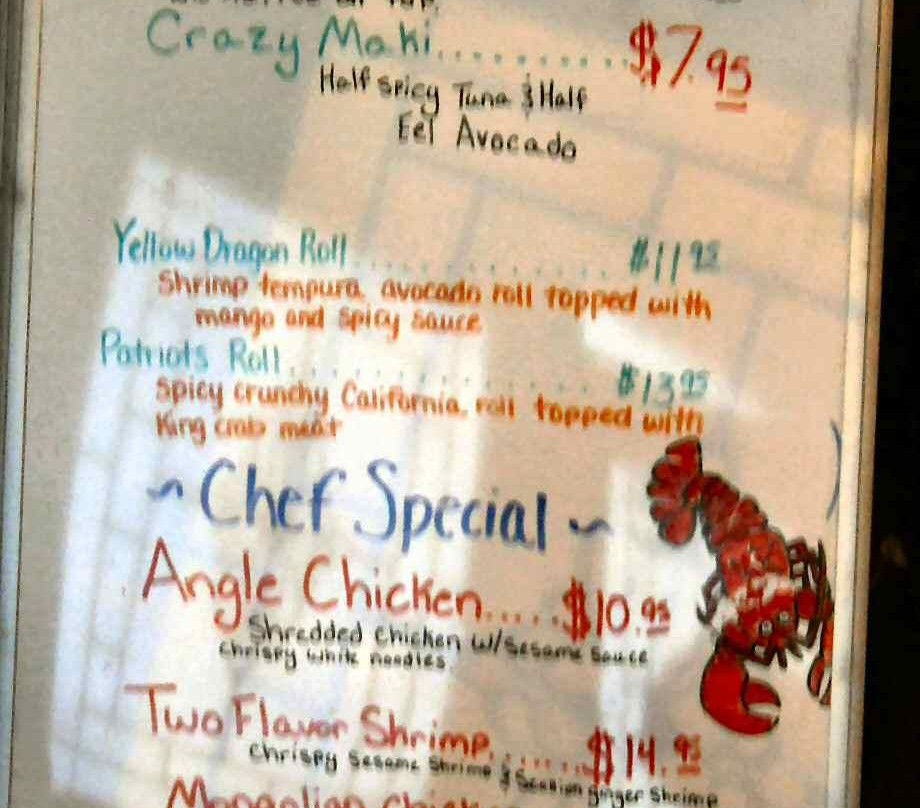 Crazy Maki.......... $7.95
Half spicy Tuna & Half
Eel Avocado
Yellow Dragon Roll............ $11.95
Shrimp tempura, avocado roll topped with
mango and spicy sauce
Patriots Roll............... $13.95
Spicy crunchy California, roll topped with
King crab meat
~ Chef Special ~
Angle Chicken.....$10.95
Shredded chicken w/sesame sauce
chrispy white noodles
Two Flavor Shrimp.......$14.95
chrispy sesame shrimp & ginger Shrimp
Mongolian chick